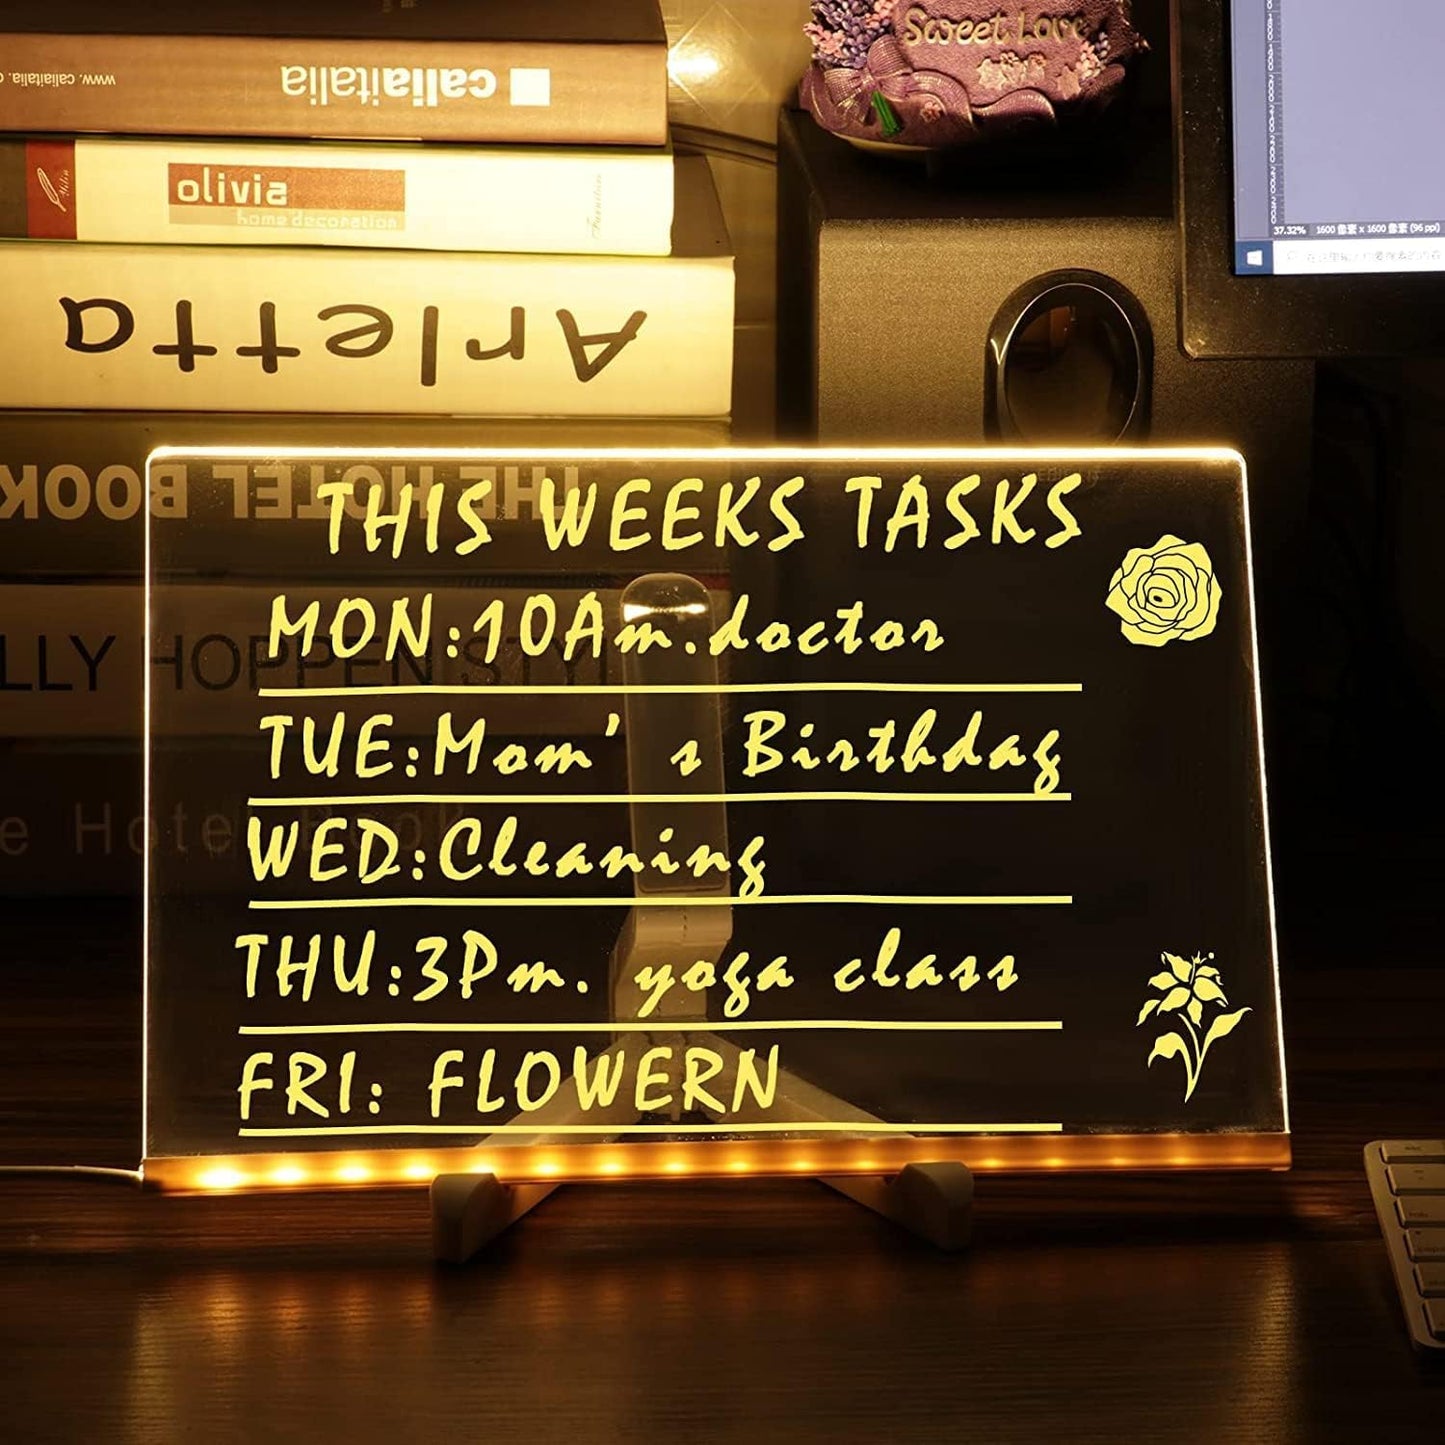 www.caliaitalia.
caliaitalia
olivia
home decoration
Arletta
THE HOTEL BOOK
LLY HOPPEN STYL
e Hotel Book
Sweet Love
37.32% 1600 像素 x 1600 像素 (96 ppi)
THIS WEEKS TASKS
MON:10Am.doctor
TUE:Mom's Birthday
WED:Cleaning
THU:3Pm. yoga class
FRI: FLOWERN